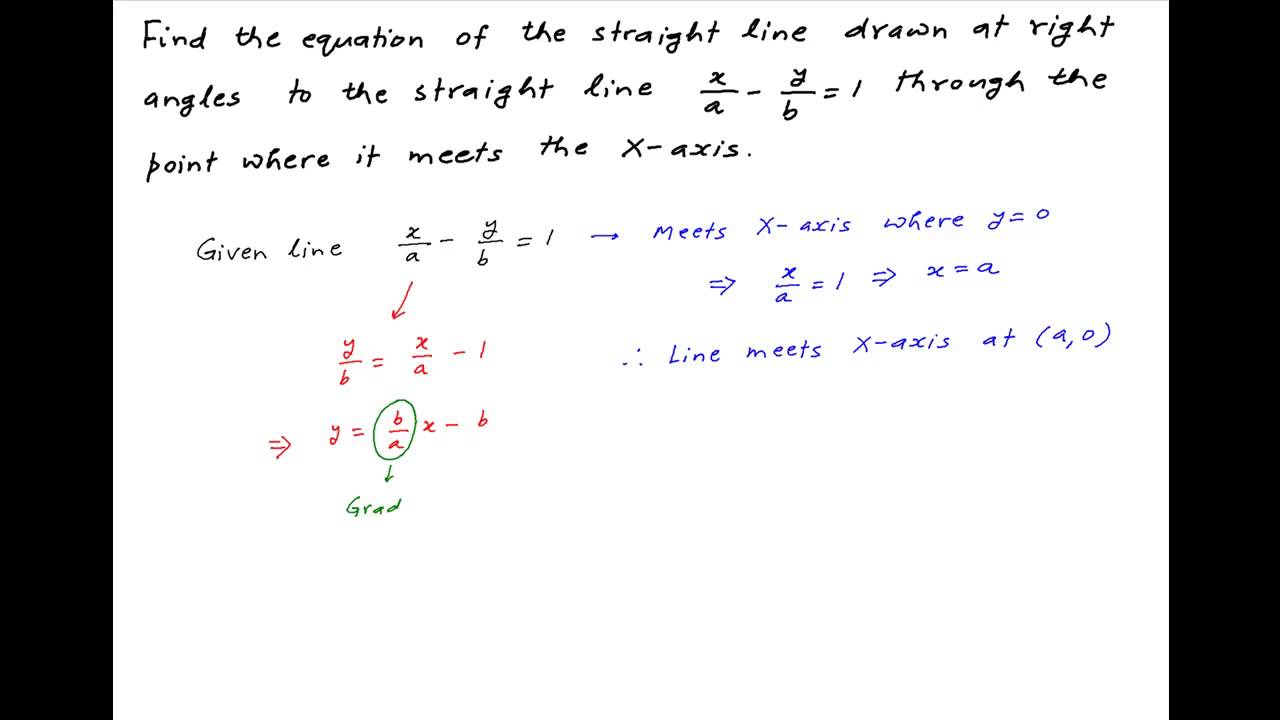 Find the equation of the straight line drawn at right
angles to the straight line x/a - y/b = 1 through the
point where it meets the X-axis.
Given line x/a - y/b = 1 → Meets X-axis where y = 0
⇒ x/a = 1 ⇒ x = a
∴ Line meets X-axis at (a, 0)
y/b = x/a - 1
⇒ y = b/a x - b
Grad